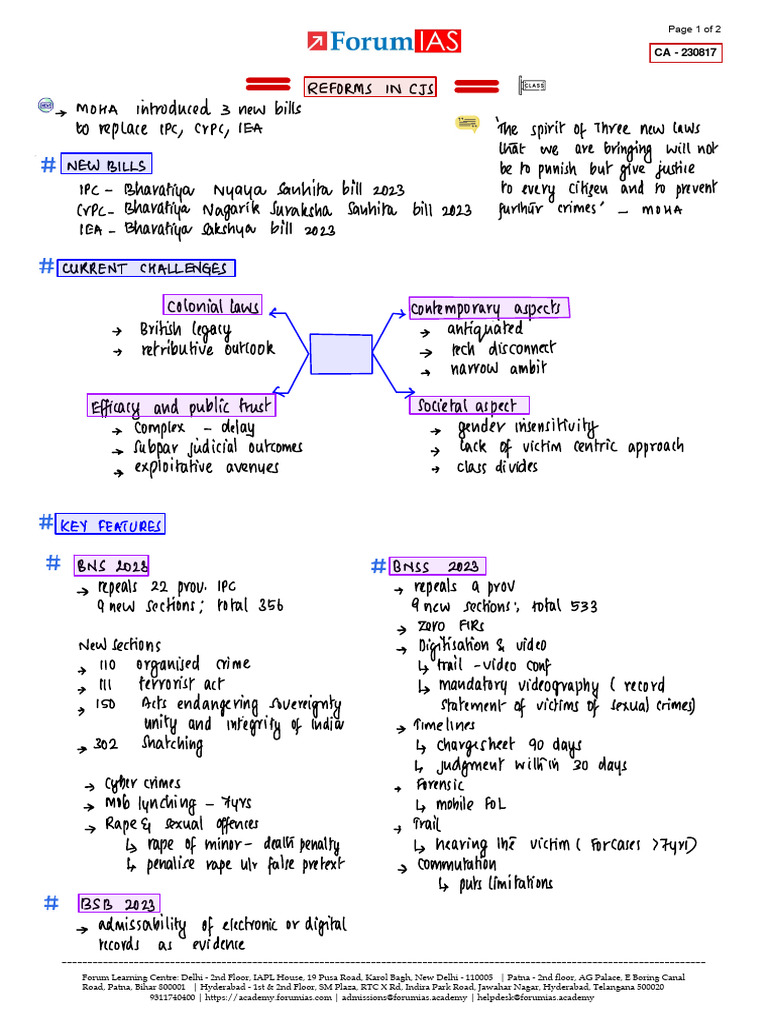 Forum IAS
Page 1 of 2
CA - 230817
REFORMS IN CJS
CLASS
NEWS
→ MOHA introduced 3 new bills
to replace IPC, CrPC, IEA
'The spirit of Three new laws
that we are bringing will not
be to punish but give justice
to every citizen and to prevent
further crimes' – MOHA
# NEW BILLS
IPC – Bharatiya Nyaya Sanhita bill 2023
CrPC – Bharatiya Nagarik Suraksha Sanhita bill 2023
IEA – Bharatiya Sakshya bill 2023
# CURRENT CHALLENGES
Colonial laws
→ British legacy
→ retributive outlook
Contemporary aspects
→ antiquated
→ tech disconnect
→ narrow ambit
Efficacy and public trust
→ Complex – delay
→ Subpar judicial outcomes
→ exploitative avenues
Societal aspect
→ gender insensitivity
→ lack of victim centric approach
→ class divides
# KEY FEATURES
# BNS 2023
→ repeals 22 prov. IPC
9 new sections; total 356
New sections
→ 110 organised crime
→ 111 terrorist act
→ 150 Acts endangering sovereignty
unity and integrity of India
→ 302 Snatching
→ Cyber crimes
→ Mob lynching – 7yrs
→ Rape & sexual offences
↳ rape of minor – death penalty
↳ penalise rape u/r false pretext
# BSB 2023
→ admissability of electronic or digital
records as evidence
# BNSS 2023
→ repeals 9 prov
9 new sections; total 533
→ Zero FIRs
→ Digitisation & video
↳ trail – video conf
↳ mandatory videography ( record
statement of victims of sexual crimes)
→ Timelines
↳ chargesheet 90 days
↳ judgment within 30 days
→ Forensic
↳ mobile FOL
→ Trail
↳ hearing the victim ( For cases >7yrs)
→ Commutation
↳ puts limitations
Forum Learning Centre: Delhi - 2nd Floor, IAPL House, 19 Pusa Road, Karol Bagh, New Delhi - 110005 | Patna - 2nd floor, AG Palace, E Boring Canal
Road, Patna, Bihar 800001 | Hyderabad - 1st & 2nd Floor, SM Plaza, RTC X Rd, Indira Park Road, Jawahar Nagar, Hyderabad, Telangana 500020
9311740400 | https://academy.forumias.com | admissions@forumias.academy | helpdesk@forumias.academy